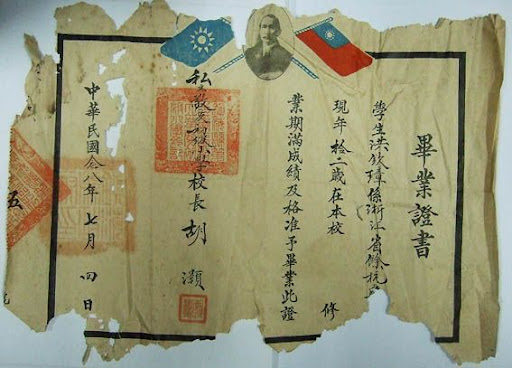 畢業證書
學生洪欽璋係浙江省餘杭
現年拾二歲在本校 修
業期滿成績及格准予畢業此證
私立敬 級小學校長胡灝
中華民國 八年七月四日
五